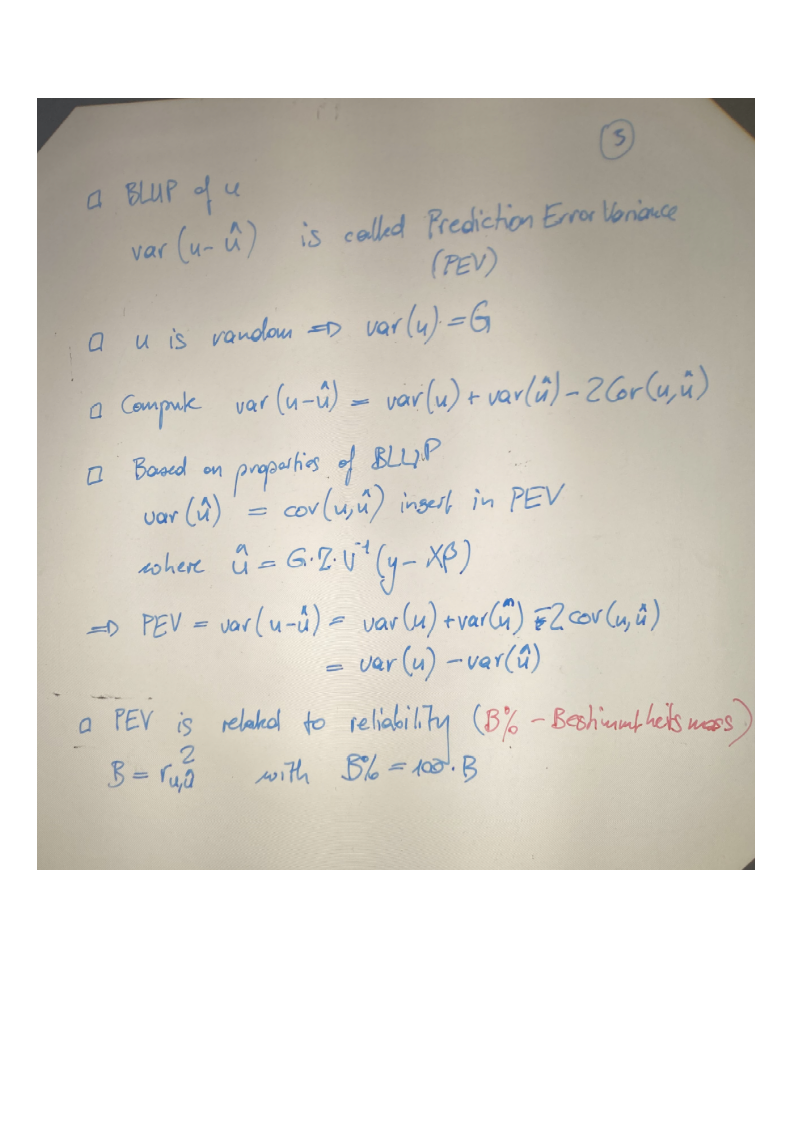 5
□ BLUP of u
var(u-û) is called Prediction Error Variance
(PEV)
□ u is random => var(u) = G
□ Compute var(u-û) = var(u) + var(û) - 2 Cov(u,û)
□ Based on properties of BLUP
var(û) = cov(u,û) insert in PEV
where û = G·Z·V⁻¹(y - Xβ)
=> PEV = var(u-û) = var(u) + var(û) - 2 cov(u,û)
= var(u) - var(û)
□ PEV is related to reliability (B% - Bestimmtheitsmass)
B = r²u,û with B% = 100·B